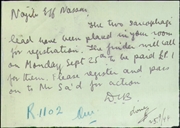 Nagib Eff Nassar
The two sarcophagi
lead have been placed in your room
for registration. The finder will call
on Monday Sept 25th to be paid £1
for them. Please register and pass
on to Mr Sa'id for action
DCB
R 1102
done